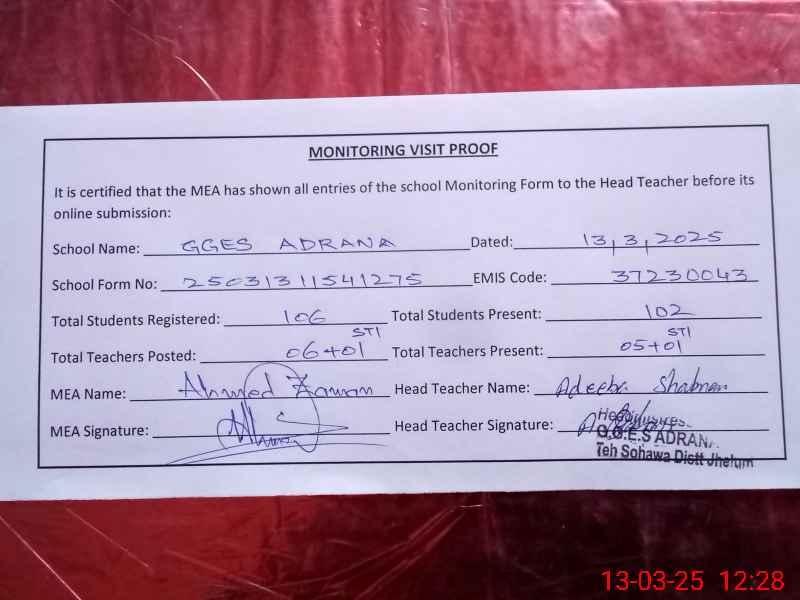 MONITORING VISIT PROOF
It is certified that the MEA has shown all entries of the school Monitoring Form to the Head Teacher before its
online submission:
School Name: GGES ADRANA Dated: 13,3,2025
School Form No: 25031311541275 EMIS Code: 37230043
Total Students Registered: 106 Total Students Present: 102
Total Teachers Posted: 06+01 STI Total Teachers Present: 05+01 STI
MEA Name: Ahmed Zaman Head Teacher Name: Adeeba Shabnam
MEA Signature: Head Teacher Signature:
G.G.E.S ADRANA
Teh Sohawa Distt Jhelum
13-03-25 12:28